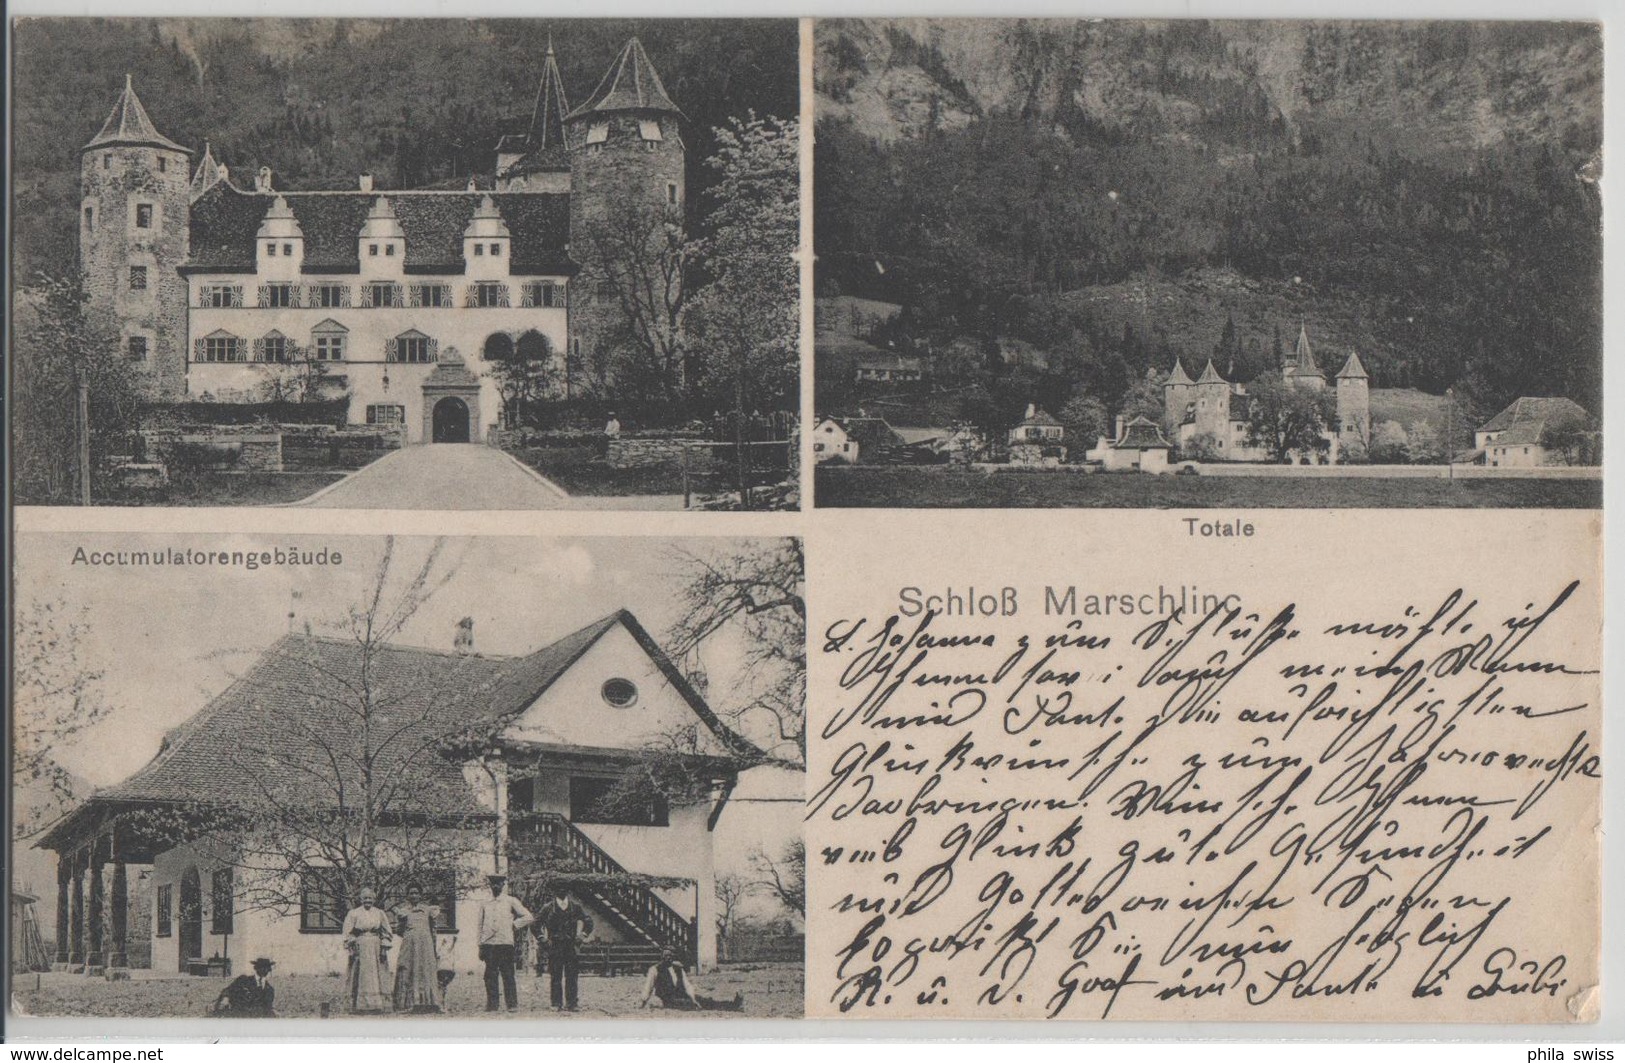 Totale
Accumulatorengebäude
Schloß Marschlinc
L. Johanna zum Schluße möchte ich
Ihnen sowi auch mein Mann
und Tante die aufrichtigsten
Glückwünsche zum Jahreswechsel
darbringen. Wünsche Ihnen
viel Glück, gute Gesundheit
und Gottes reichen Segen
grüßt Sie nun herzlich
K. u. d. Graf und Tante u Bubi
www.delcampe.net
phila_swiss